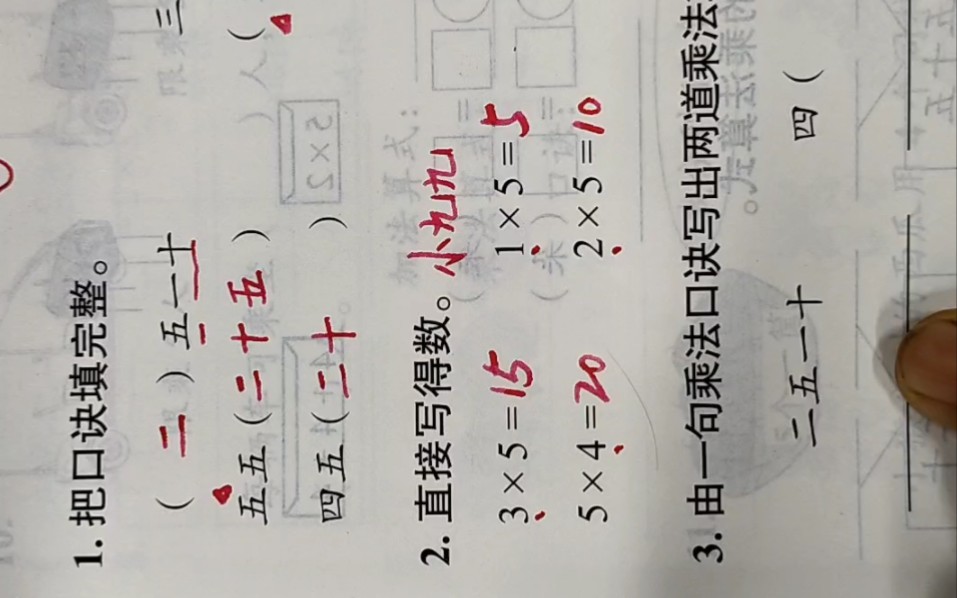 1. 把口诀填完整。
( 二 ) 五一十 三
五五 ( 二十五 ) (
四五 ( 二十 )
2. 直接写得数。小九九
3×5=15 1×5=5
5×4=20 2×5=10
3. 由一句乘法口诀写出两道乘法
二五一十 四 (